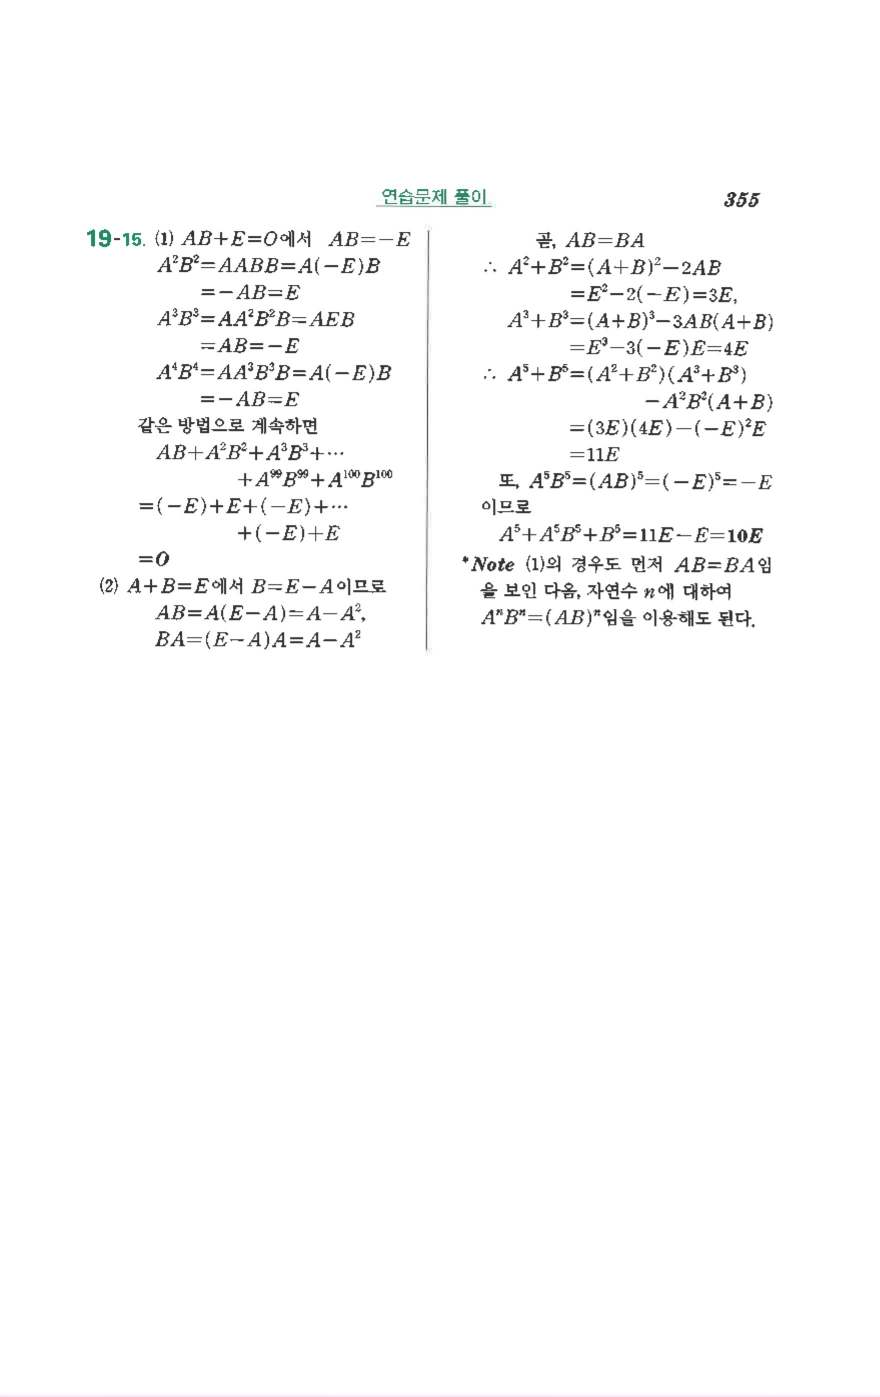 연습문제 풀이 355
19-15. (1) AB+E=O에서 AB=-E
A²B²=AABB=A(-E)B
=-AB=E
A³B³=AA²B²B=AEB
=AB=-E
A⁴B⁴=AA³B³B=A(-E)B
=-AB=E
같은 방법으로 계속하면
AB+A²B²+A³B³+⋯
+A⁹⁹B⁹⁹+A¹⁰⁰B¹⁰⁰
=(-E)+E+(-E)+⋯
+(-E)+E
=O
(2) A+B=E에서 B=E-A이므로
AB=A(E-A)=A-A²,
BA=(E-A)A=A-A²
곧, AB=BA
∴ A²+B²=(A+B)²-2AB
=E²-2(-E)=3E,
A³+B³=(A+B)³-3AB(A+B)
=E³-3(-E)E=4E
∴ A⁵+B⁵=(A²+B²)(A³+B³)
-A²B²(A+B)
=(3E)(4E)-(-E)²E
=11E
또, A⁵B⁵=(AB)⁵=(-E)⁵=-E
이므로
A⁵+A⁵B⁵+B⁵=11E-E=10E
*Note (1)의 경우도 먼저 AB=BA임
을 보인 다음, 자연수 n에 대하여
AⁿBⁿ=(AB)ⁿ임을 이용해도 된다.